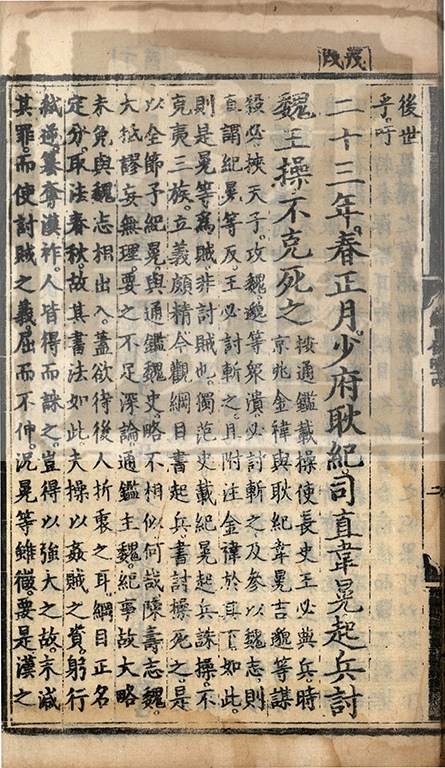 戊戌
後世
乎。吁
二十三年。春正月。少府耿紀。司直韋晃起兵討
魏王操不克死之
按通鑑載操使長史王必典兵。時
京兆金禕與耿紀韋晃吉邈等謀
殺必挾天子。攻魏邈等衆潰必討斬之。及參以魏志。則
直謂紀晃等反。王必討斬之。且附注金禕於其下。如此。
則是晃等爲賊。非討賊也。獨范史載紀晃起兵誅操。不
克夷三族。立義頗精。今觀綱目書起兵。書討操。死之。是
以全節予紀晃。與通鑑魏史。略不相似。何哉。陳壽志魏。
大抵謬妄無理。要之不足深論。通鑑主魏。紀事。故大略
未免與魏志相出入。蓋欲待後人折衷之耳。綱目正名
定分。取法春秋。故其書法如此。夫操以姦賊之資。躬行
弒逆。簒奪漢祚。人皆得而誅之。豈得以強大之故。末減
其罪。而使討賊之義。屈而不伸。況晃等雖微。要是漢之